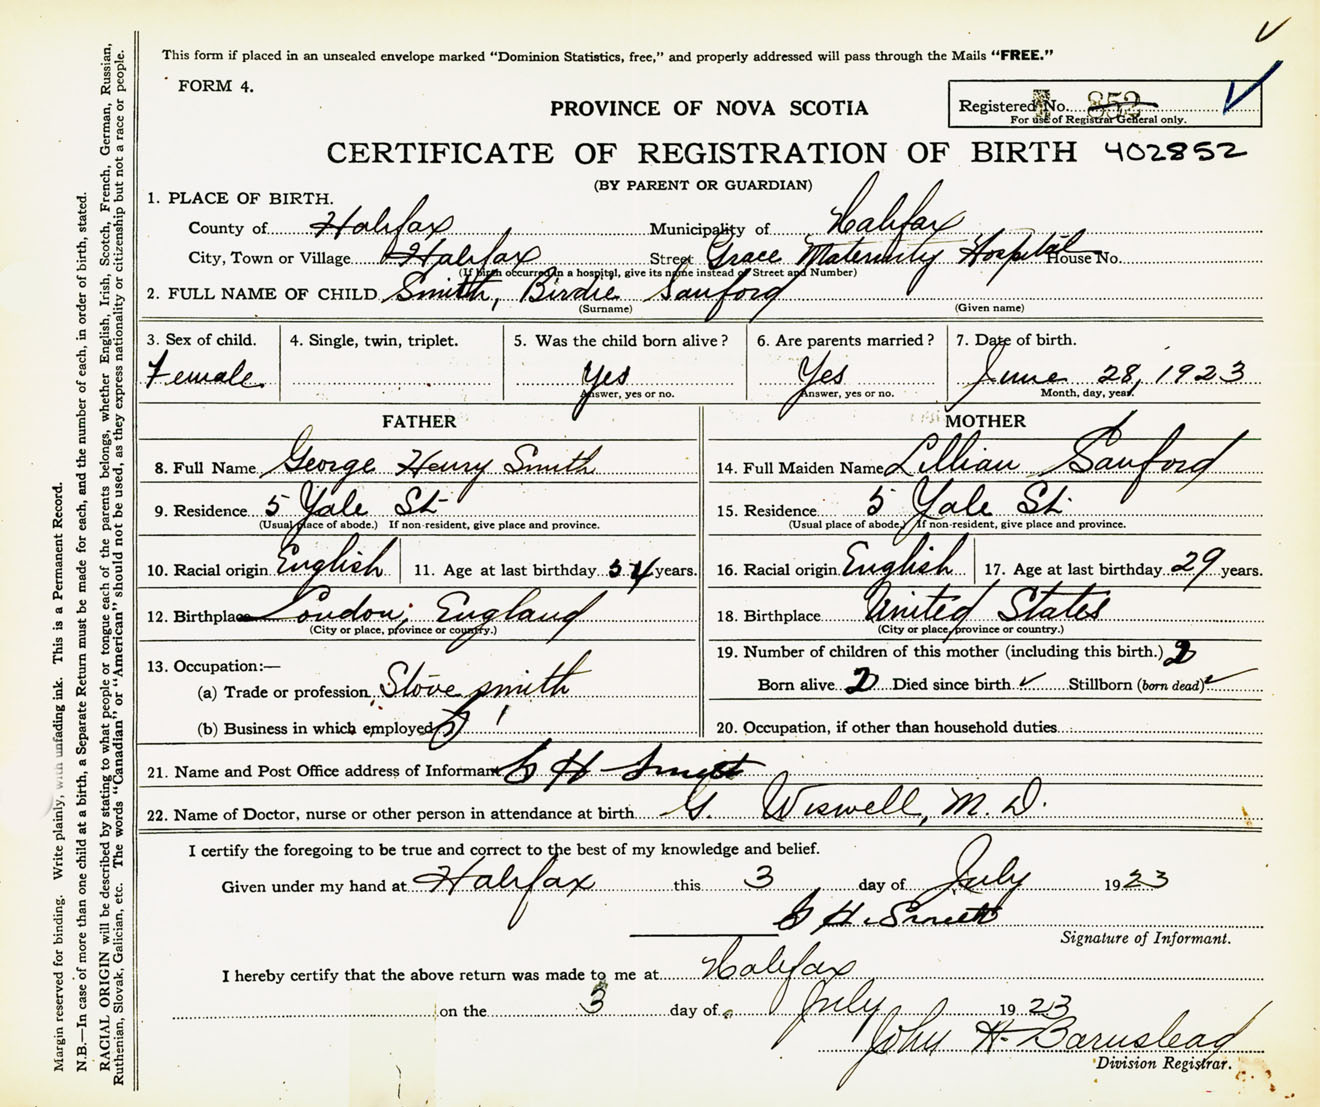 This form if placed in an unsealed envelope marked "Dominion Statistics, free," and properly addressed will pass through the Mails "FREE."
FORM 4.
PROVINCE OF NOVA SCOTIA
Registered No. 852
For use of Registrar General only.
CERTIFICATE OF REGISTRATION OF BIRTH 402852
(BY PARENT OR GUARDIAN)
1. PLACE OF BIRTH.
County of Halifax Municipality of Halifax
City, Town or Village Halifax Street Grace Maternity Hospital House No.
(If birth occurred in a hospital, give its name instead of Street and Number)
2. FULL NAME OF CHILD Smith, Birdie Sanford
(Surname) (Given name)
3. Sex of child. 4. Single, twin, triplet. 5. Was the child born alive? 6. Are parents married? 7. Date of birth.
Female Yes Yes June 28, 1923
Answer, yes or no. Answer, yes or no. Month, day, year.
FATHER MOTHER
8. Full Name George Henry Smith 14. Full Maiden Name Lillian Sanford
9. Residence 5 Yale St 15. Residence 5 Yale St
(Usual place of abode.) If non-resident, give place and province. (Usual place of abode.) If non-resident, give place and province.
10. Racial origin English 11. Age at last birthday 34 years. 16. Racial origin English 17. Age at last birthday 29 years.
12. Birthplace London, England 18. Birthplace United States
(City or place, province or country.) (City or place, province or country.)
13. Occupation:— 19. Number of children of this mother (including this birth.) 2
(a) Trade or profession Stove smith Born alive 2 Died since birth Stillborn (born dead)
(b) Business in which employed 20. Occupation, if other than household duties
21. Name and Post Office address of Informant G H Smith
22. Name of Doctor, nurse or other person in attendance at birth G. Wiswell, M.D.
I certify the foregoing to be true and correct to the best of my knowledge and belief.
Given under my hand at Halifax this 3 day of July 1923
G H. Smith
Signature of Informant.
I hereby certify that the above return was made to me at Halifax
on the 3 day of July 1923
John H. Barnstead
Division Registrar.
Margin reserved for binding. Write plainly, with unfading ink. This is a Permanent Record.
N.B.—In case of more than one child at a birth, a Separate Return must be made for each, and the number of each, in order of birth, stated.
RACIAL ORIGIN will be described by stating to what people or tongue each of the parents belongs, whether English, Irish, Scotch, French, German, Russian,
Ruthenian, Slovak, Galician, etc. The words "Canadian" or "American" should not be used, as they express nationality or citizenship but not a race or people.